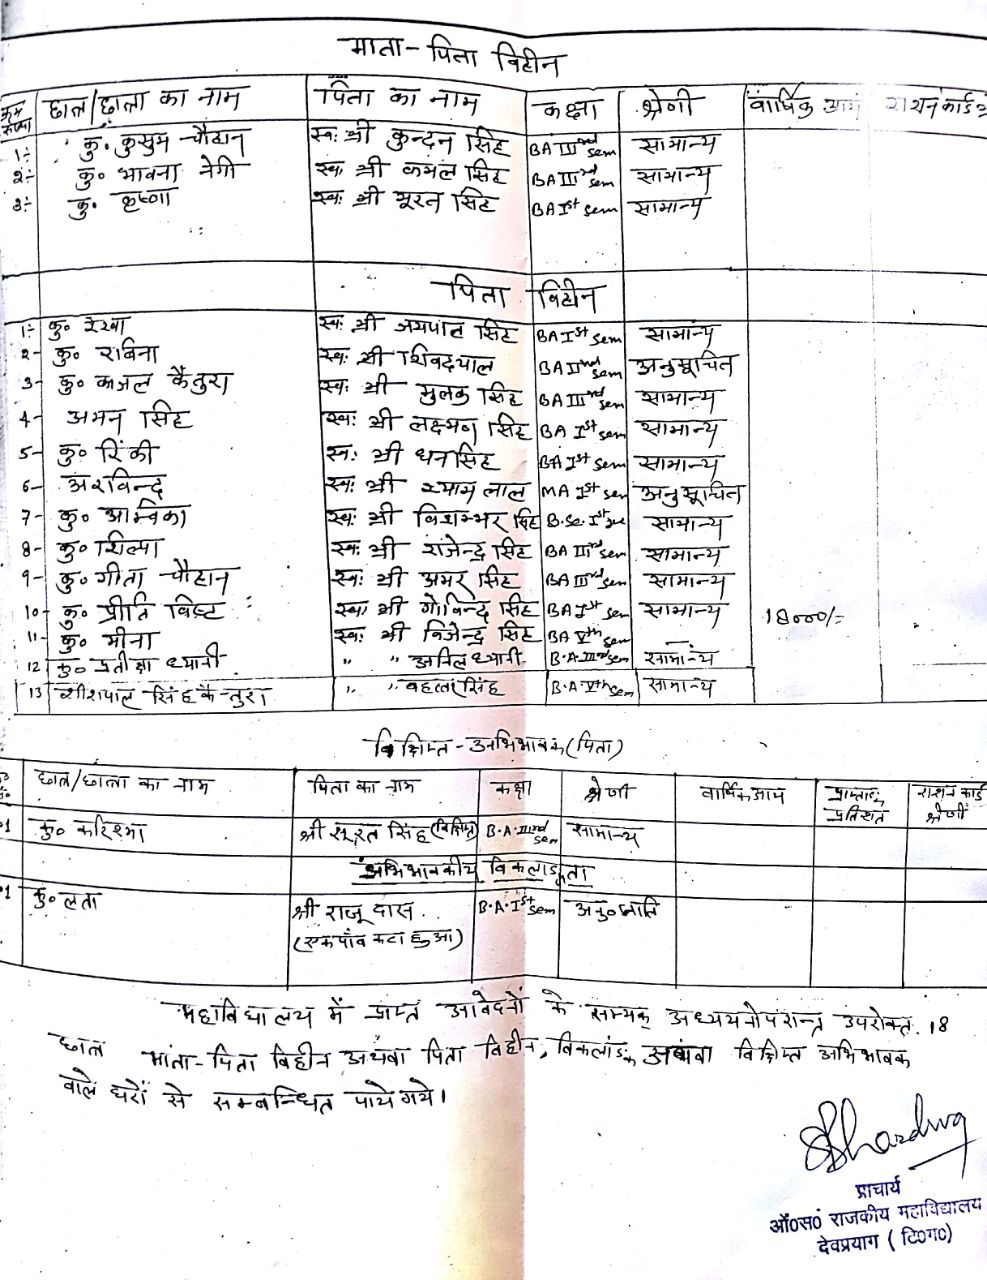 माता-पिता विहीन
क्रम संख्या छात्र/छात्रा का नाम पिता का नाम कक्षा श्रेणी वार्षिक आय राशनकार्ड
1:- कु. कुसुम चौहान स्वः श्री कुन्दन सिंह BA IIIrd sem सामान्य
2:- कु० भावना नेगी स्वः श्री कमल सिंह BA IIIrd sem सामान्य
3:- कु० कृष्णा स्वः श्री सूरत सिंह BA Ist sem सामान्य
पिता विहीन
1:- कु० रेखा स्वः श्री जयपाल सिंह BA Ist sem सामान्य
2- कु० रविना स्वः श्री शिवदयाल BA IInd sem अनुसूचित
3- कु० काजल कैंतुरा स्वः श्री मुलकु सिंह BA IIIrd sem सामान्य
4- अमन सिंह स्वः श्री लक्ष्मण सिंह BA Ist sem सामान्य
5- कु० रिंकी स्वः श्री धनसिंह BA Ist sem सामान्य
6- अरविन्द स्वः श्री श्याम लाल MA Ist sem अनुसूचित
7- कु० आम्बिका स्वः श्री विशम्भर सिंह B.Sc. Ist सामान्य
8- कु० शिल्पा स्वः श्री राजेन्द्र सिंह BA IIIrd sem सामान्य
9- कु० गीता चौहान स्वः श्री अमर सिंह BA IIIrd sem सामान्य
10- कु० प्रीति बिष्ट स्वः श्री गोविन्द सिंह BA Ist sem सामान्य 18000/=
11- कु० मीना स्वः श्री विजेन्द्र सिंह BA Vth sem —
12- कु० प्रतीक्षा ध्यानी " " अनिल ध्यानी B.A. IIIrd sem सामान्य
13- शीशपाल सिंह कैन्तुरा " " सिंह B.A. Vth sem सामान्य
विक्षिप्त-अभिभावक (पिता)
छात्र/छात्रा का नाम पिता का नाम कक्षा श्रेणी वार्षिक आय प्राप्तांक प्रतिशत राशन कार्ड श्रेणी
1 कु० करिश्मा श्री सूरत सिंह (विक्षिप्त) B.A. IIIrd sem सामान्य
अभिभावकीय विकलाङ्गता
1 कु० लता श्री राजू दास B.A. Ist sem अनु० जाति
(एक पाँव कटा हुआ)
महाविद्यालय में प्राप्त आवेदनों के सम्यक् अध्ययनोपरान्त उपरोक्त 18
छात्र माता-पिता विहीन अथवा पिता विहीन, विकलांग अथवा विक्षिप्त अभिभावक
वाले घरों से सम्बन्धित पाये गये।
प्राचार्य
ओं0स0 राजकीय महाविद्यालय
देवप्रयाग ( टि0ग0)